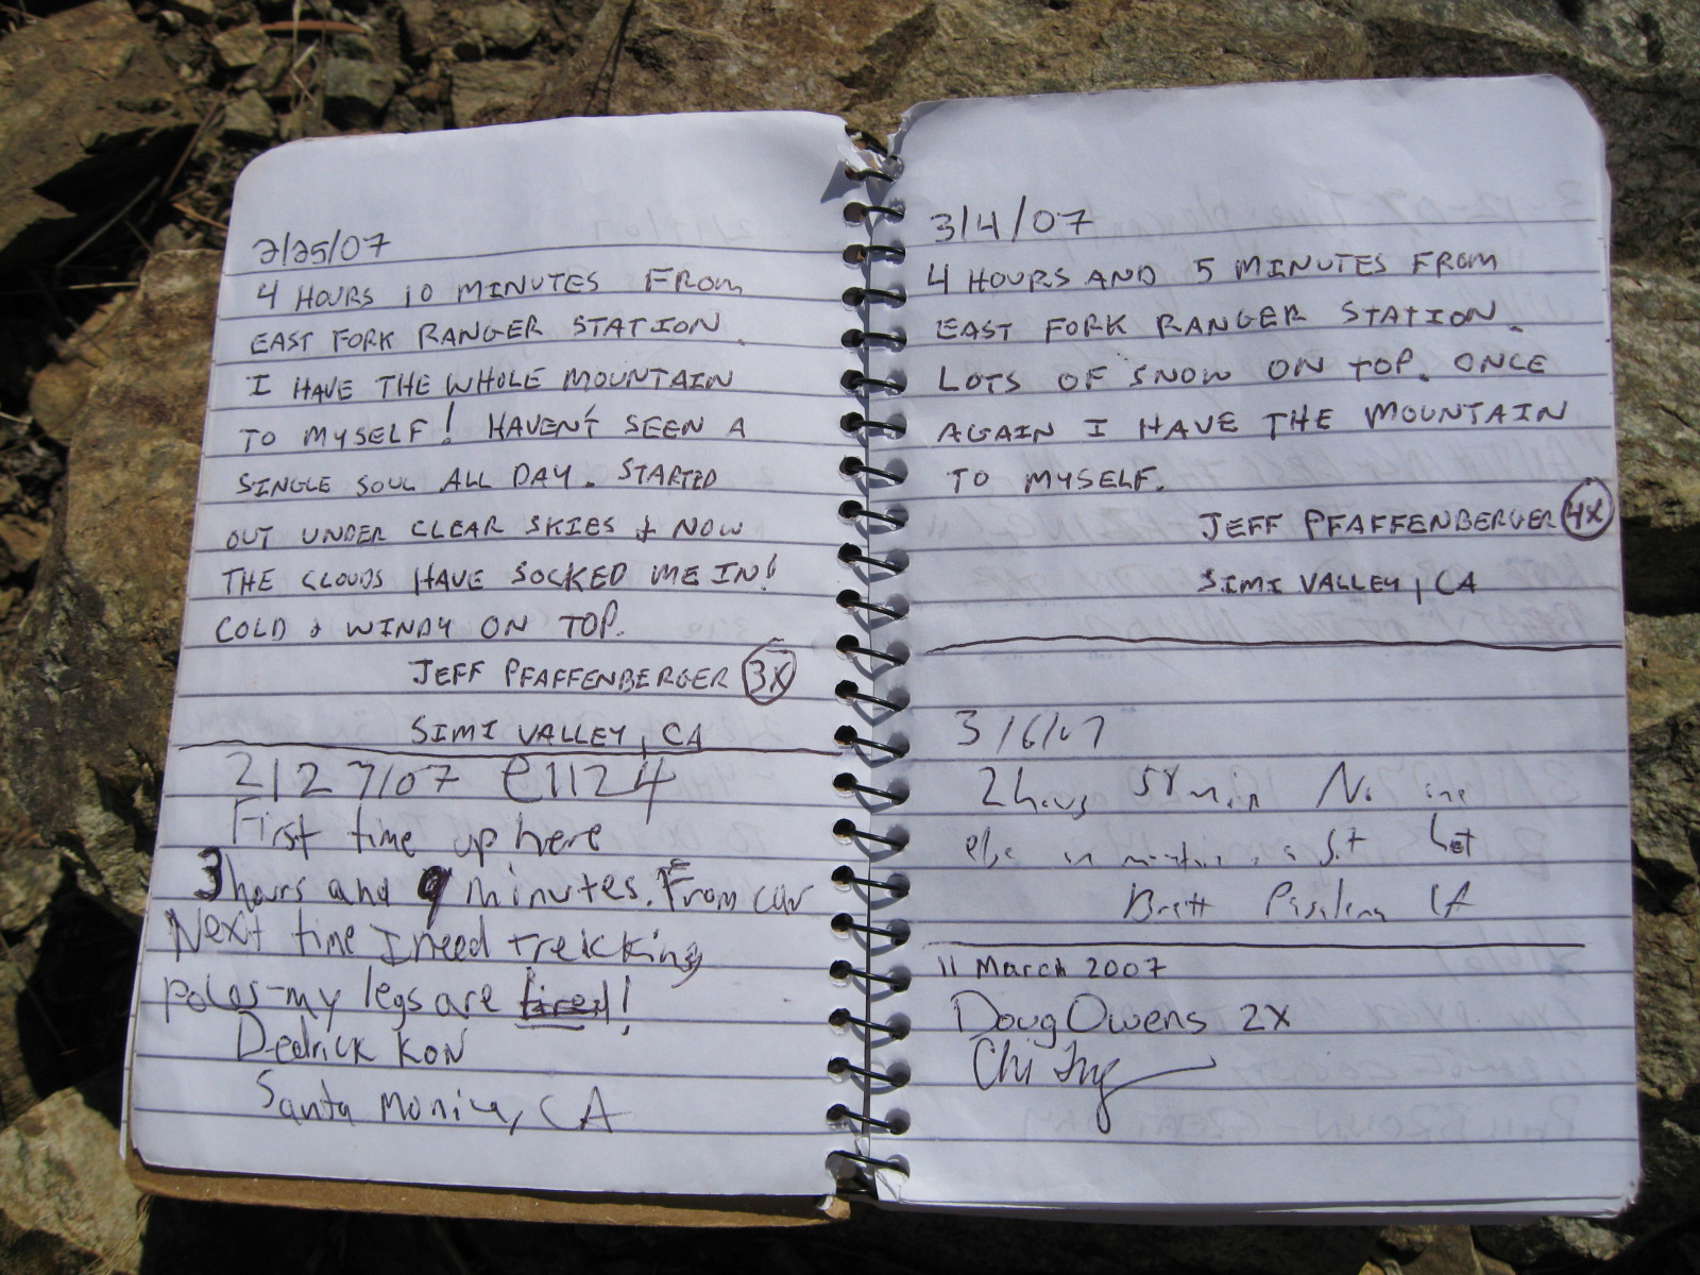 2/25/07
4 HOURS 10 MINUTES FROM
EAST FORK RANGER STATION.
I HAVE THE WHOLE MOUNTAIN
TO MYSELF! HAVEN'T SEEN A
SINGLE SOUL ALL DAY. STARTED
OUT UNDER CLEAR SKIES & NOW
THE CLOUDS HAVE SOCKED ME IN!
COLD & WINDY ON TOP.
JEFF PFAFFENBERGER 3X
SIMI VALLEY, CA
2/27/07 @1124
First time up here
3 hours and 9 minutes. From car
Next time I need treicking
poles-my legs are tired!
Dedrick Kon
Santa Monica, CA
3/4/07
4 HOURS AND 5 MINUTES FROM
EAST FORK RANGER STATION.
LOTS OF SNOW ON TOP. ONCE
AGAIN I HAVE THE MOUNTAIN
TO MYSELF.
JEFF PFAFFENBERGER 4X
SIMI VALLEY, CA
3/6/07
2 hours 58 min No one
else
Brett Pasadena CA
11 March 2007
Doug Owens 2X
Chi